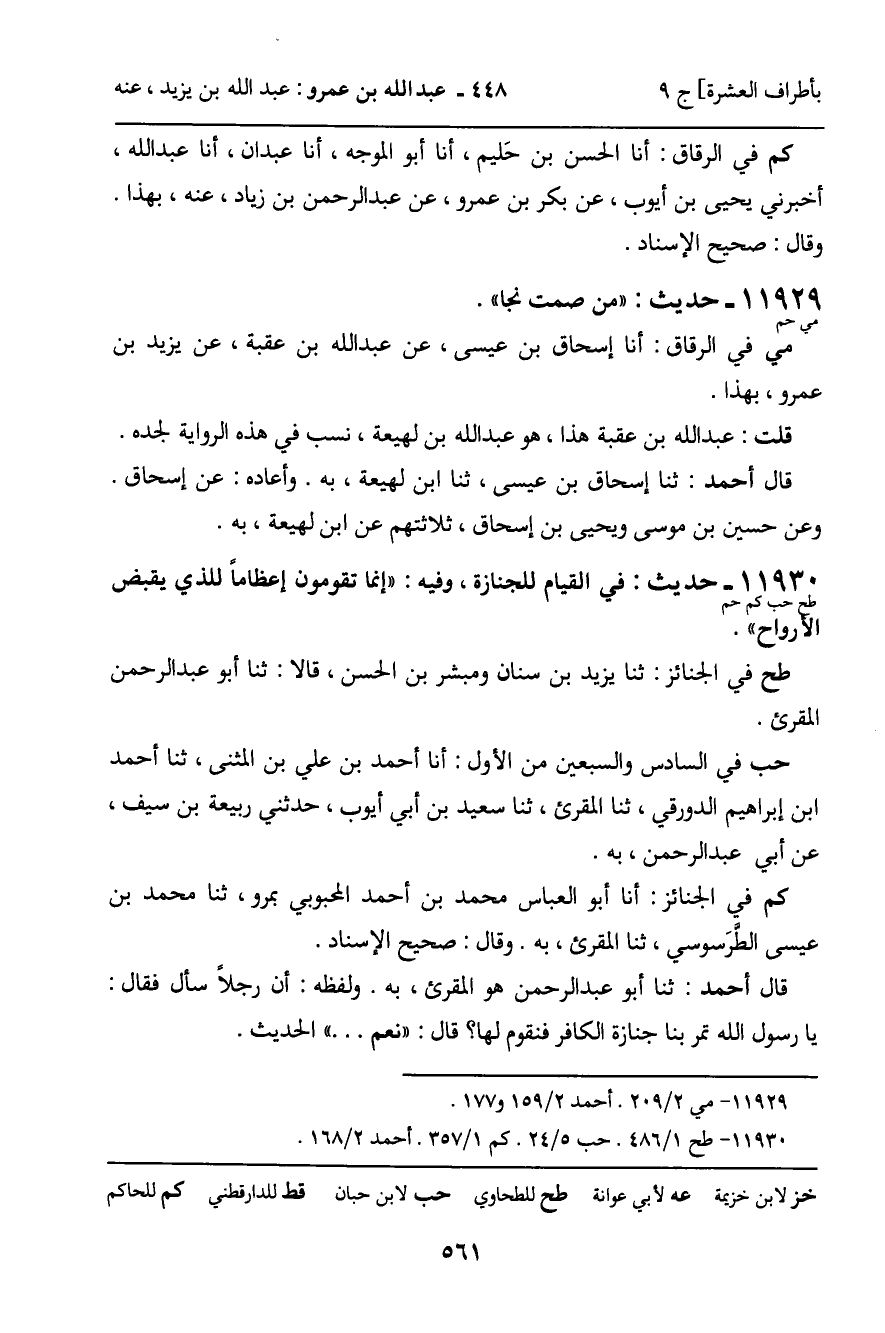 بأطراف العشرة] ج ٩ ٤٤٨ ـ عبدالله بن عمرو : عبد الله بن يزيد ، عنه
كم في الرقاق : أنا الحسن بن حَليم ، أنا أبو الموجه ، أنا عبدان ، أنا عبدالله ،
أخبرني يحيى بن أيوب ، عن بكر بن عمرو ، عن عبدالرحمن بن زياد ، عنه ، بهذا .
وقال : صحيح الإسناد .
١١٩٢٩ ـ حديث : «من صمت نجا» .
مي حم
مي في الرقاق : أنا إسحاق بن عيسى ، عن عبدالله بن عقبة ، عن يزيد بن
عمرو ، بهذا .
قلت : عبدالله بن عقبة هذا ، هو عبدالله بن لهيعة ، نسب في هذه الرواية لجده .
قال أحمد : ثنا إسحاق بن عيسى ، ثنا ابن لهيعة ، به . وأعاده : عن إسحاق .
وعن حسين بن موسى ويحيى بن إسحاق ، ثلاثتهم عن ابن لهيعة ، به .
١١٩٣٠ ـ حديث : في القيام للجنازة ، وفيه : «إنما تقومون إعظاماً للذي يقبض
طح حب كم حم
الأرواح» .
طح في الجنائز : ثنا يزيد بن سنان ومبشر بن الحسن ، قالا : ثنا أبو عبدالرحمن
المقرئ .
حب في السادس والسبعين من الأول : أنا أحمد بن علي بن المثنى ، ثنا أحمد
ابن إبراهيم الدورقي ، ثنا المقرئ ، ثنا سعيد بن أبي أيوب ، حدثني ربيعة بن سيف ،
عن أبي عبدالرحمن ، به .
كم في الجنائز : أنا أبو العباس محمد بن أحمد المحبوبي بمرو ، ثنا محمد بن
عيسى الطَّرَسوسي ، ثنا المقرئ ، به . وقال : صحيح الإسناد .
قال أحمد : ثنا أبو عبدالرحمن هو المقرئ ، به . ولفظه : أن رجلاً سأل فقال :
يا رسول الله تمر بنا جنازة الكافر فنقوم لها؟ قال : «نعم . . .» الحديث .
١١٩٢٩- مي ٢٠٩/٢ . أحمد ١٥٩/٢ و١٧٧ .
١١٩٣٠- طح ٤٨٦/١ . حب ٢٤/٥ . كم ٣٥٧/١ . أحمد ١٦٨/٢ .
خز لابن خزيمة عه لأبي عوانة طح للطحاوي حب لابن حبان قط للدارقطني كم للحاكم
٥٦١